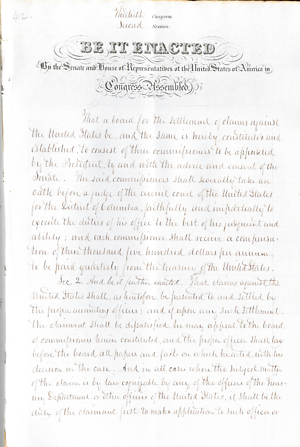 Thirtieth Congress
Second Session
BE IT ENACTED
By the Senate and House of Representatives of the United States of America in
Congress Assembled
That a board for the settlement of claims against
the United States be, and the same is hereby, constituted and
established, to consist of three commissioners to be appointed
by the President, by and with the advice and consent of the
Senate. The said commissioners shall severally take an
oath before a judge of the circuit court of the United States
for the District of Columbia, faithfully and impartially to
execute the duties of his office to the best of his judgment and
ability; and each commissioner shall receive a compensa-
tion of three thousand five hundred dollars per annum,
to be paid quarterly from the treasury of the United States.
Sec. 2. And be it further enacted, That claims against the
United States shall, as heretofore be presented to and settled by
the proper accounting officers; and if upon any such settlement
the claimant shall be dissatisfied, he may appeal to the board
of commissioners herein constituted, and the proper officer shall lay
before the board all papers and facts on which he acted, with his
decision in the case. And in all cases where the subject matter
of the claim is by law cognizable by any of the officers of the Treas-
ury Department or other officers of the United States, it shall be the
duty of the claimant first to make application to such officer or